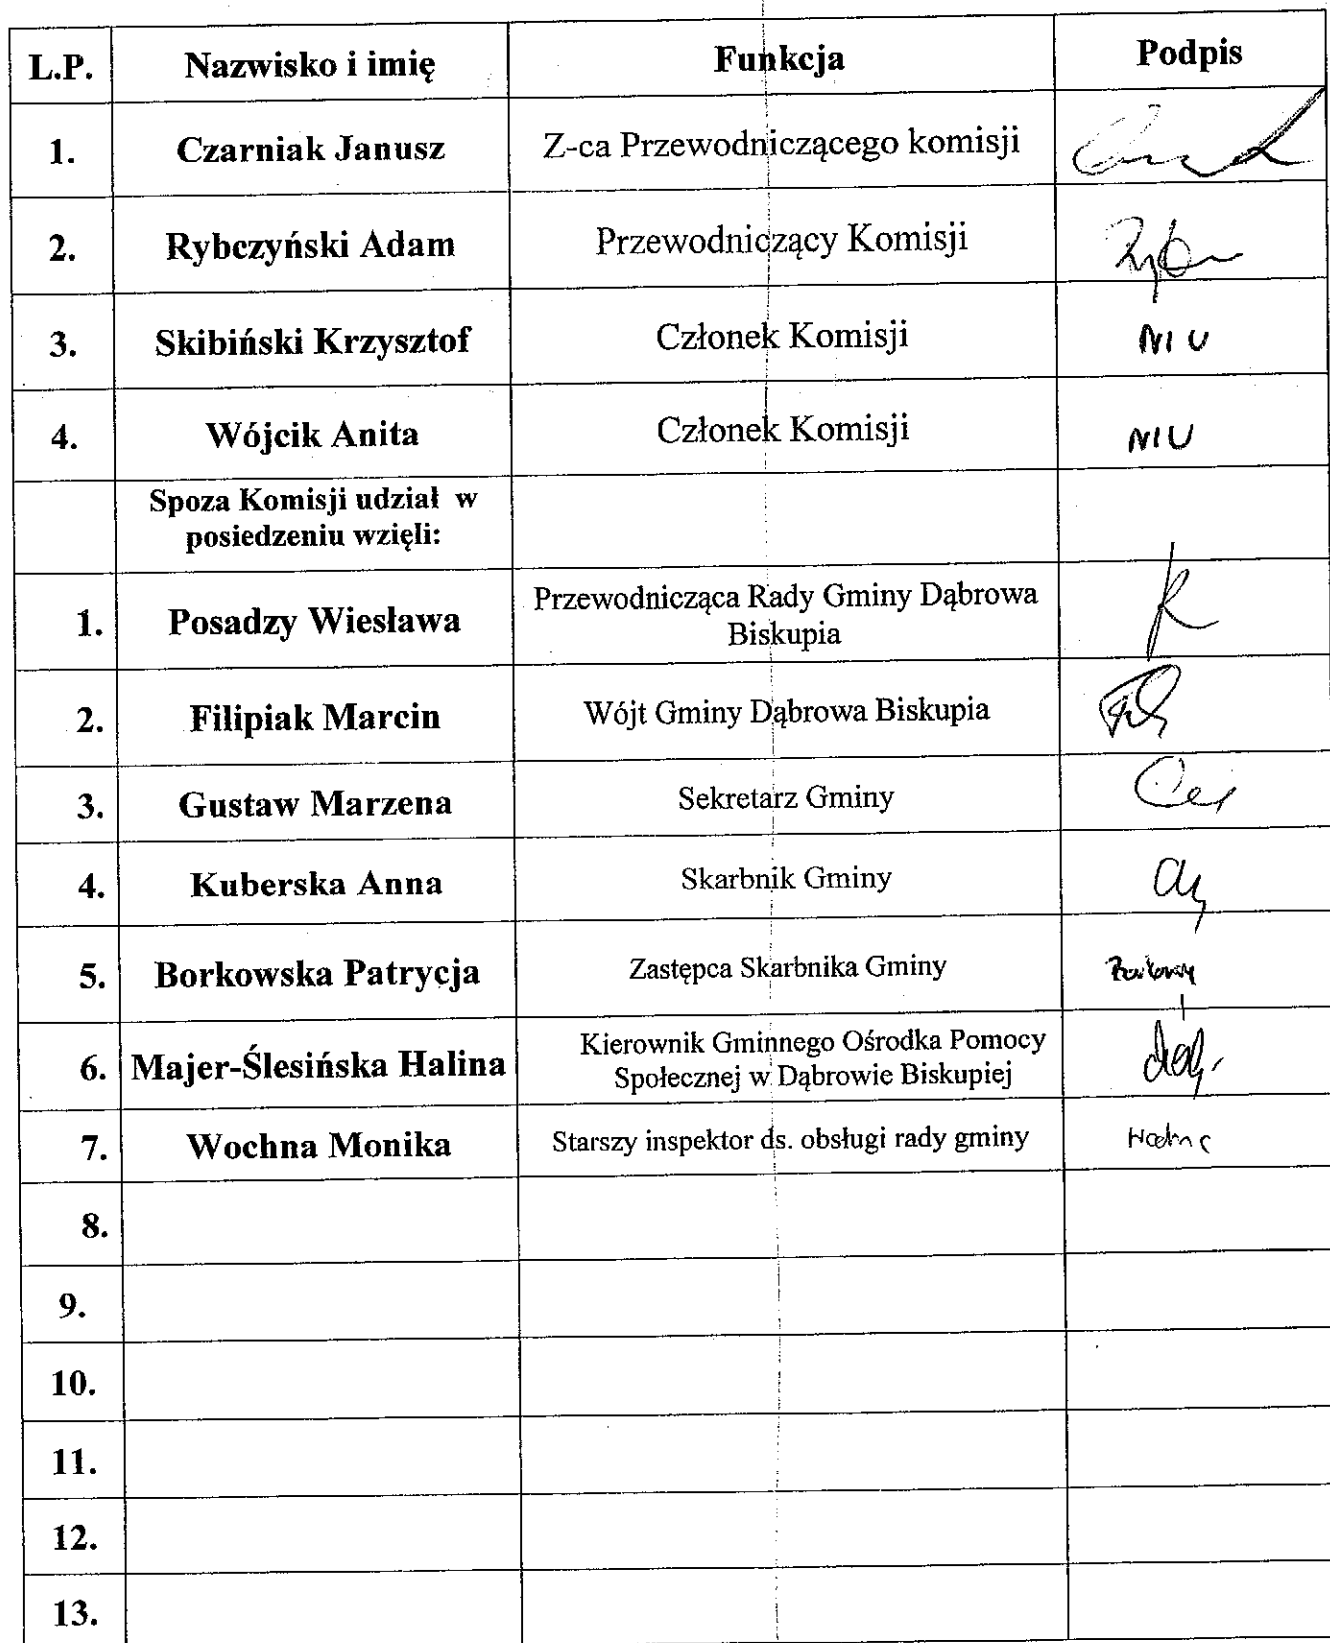 L.P. Nazwisko i imię Funkcja Podpis
1. Czarniak Janusz Z-ca Przewodniczącego komisji
2. Rybczyński Adam Przewodniczący Komisji
3. Skibiński Krzysztof Członek Komisji NIU
4. Wójcik Anita Członek Komisji NIU
Spoza Komisji udział w
posiedzeniu wzięli:
1. Posadzy Wiesława Przewodnicząca Rady Gminy Dąbrowa
Biskupia
2. Filipiak Marcin Wójt Gminy Dąbrowa Biskupia
3. Gustaw Marzena Sekretarz Gminy
4. Kuberska Anna Skarbnik Gminy
5. Borkowska Patrycja Zastępca Skarbnika Gminy
6. Majer-Ślesińska Halina Kierownik Gminnego Ośrodka Pomocy
Społecznej w Dąbrowie Biskupiej
7. Wochna Monika Starszy inspektor ds. obsługi rady gminy
8.
9.
10.
11.
12.
13.